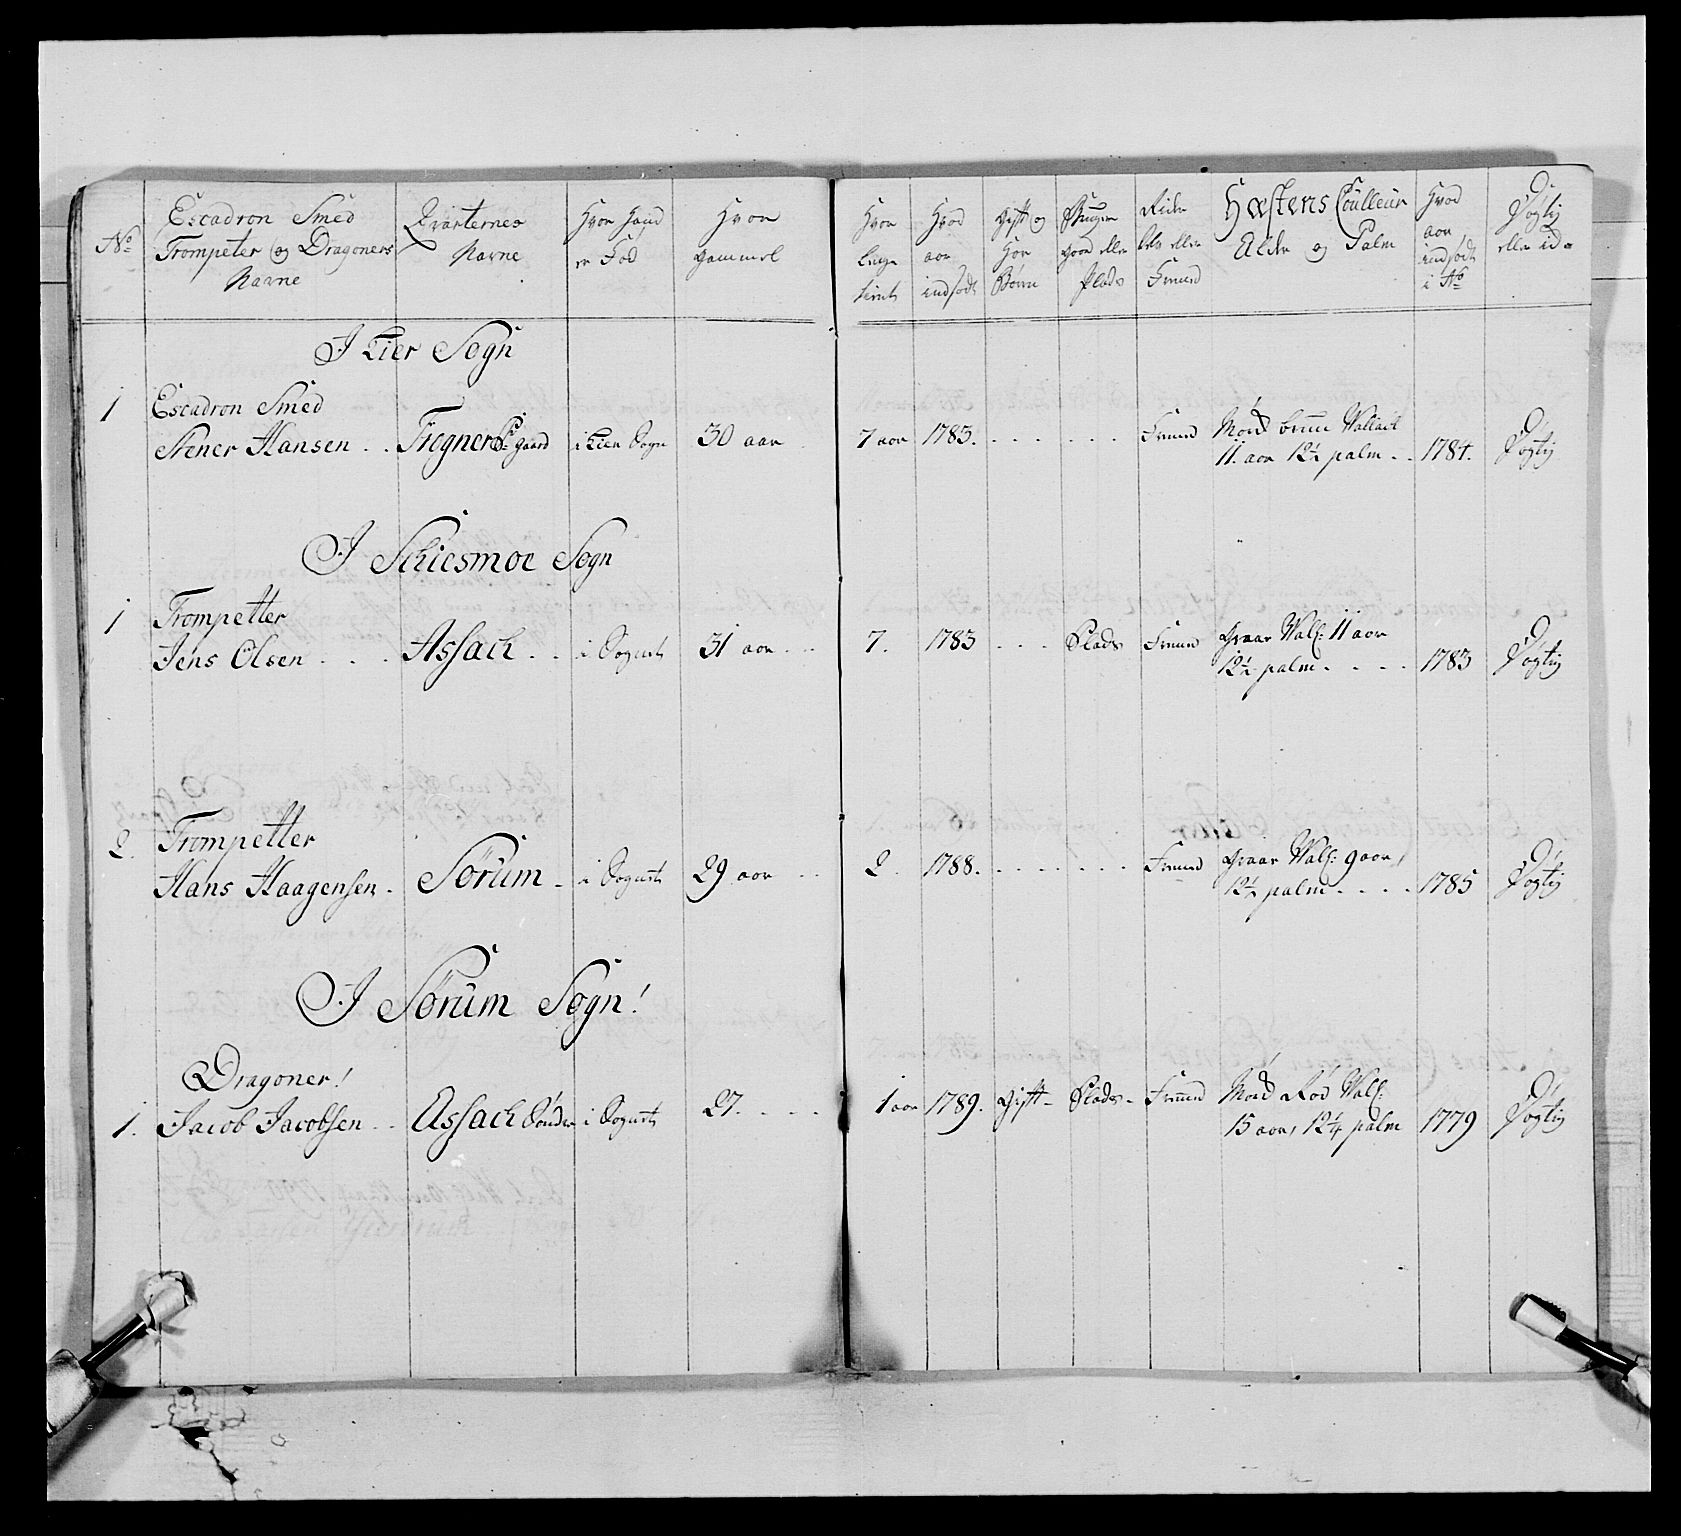 No
Escadron Smed
Trompeter og Dragoners
Navne
Qvarternes
Navne
Hvor Hand
er Fød
Hvor
gammel
Hvor
Længe
tient
Hvad
aar
indsødt
Gift og
Har
Børn
Bruger
gaard eller
Plads
Hæstens Coulleur
Alder og Palm
Hvad
aar
indsødt
i No
Døgtig
eller id
I Lier Sogn
1 Escadron Smed
Stener Hansen . . Fregner P: gaard i Lier Sogn 30 aar 7 aar 1783. . . . . . . Mørk brun Vallack
11. aar 12½ palm . . 1784. Døgtig
I Schiesmoe Sogn
1 Trompetter
Jens Olsen . . . Assach . . i Sognet 31 aar . . . 7. 1783 . . . Plads graar Val: 11 aar
12½ palm . . . . 1783 Døgtig
2. Trompetter
Hans Haagensen . Sørum . i Sognet 29 aar . . 2 1788. . . . . . . graar Val: 9 aar,
12½ palm . . . . 1785 Døgtig
I Sørum Sogn!
Dragoner!
1. Jacob Jacobsen . . Assach Søndre i Sognet 27. . . . . 1 aar 1789. Gift - Plads - Mørk Rød Val:
15 aar, 12¼ palm 1779 Døgtig